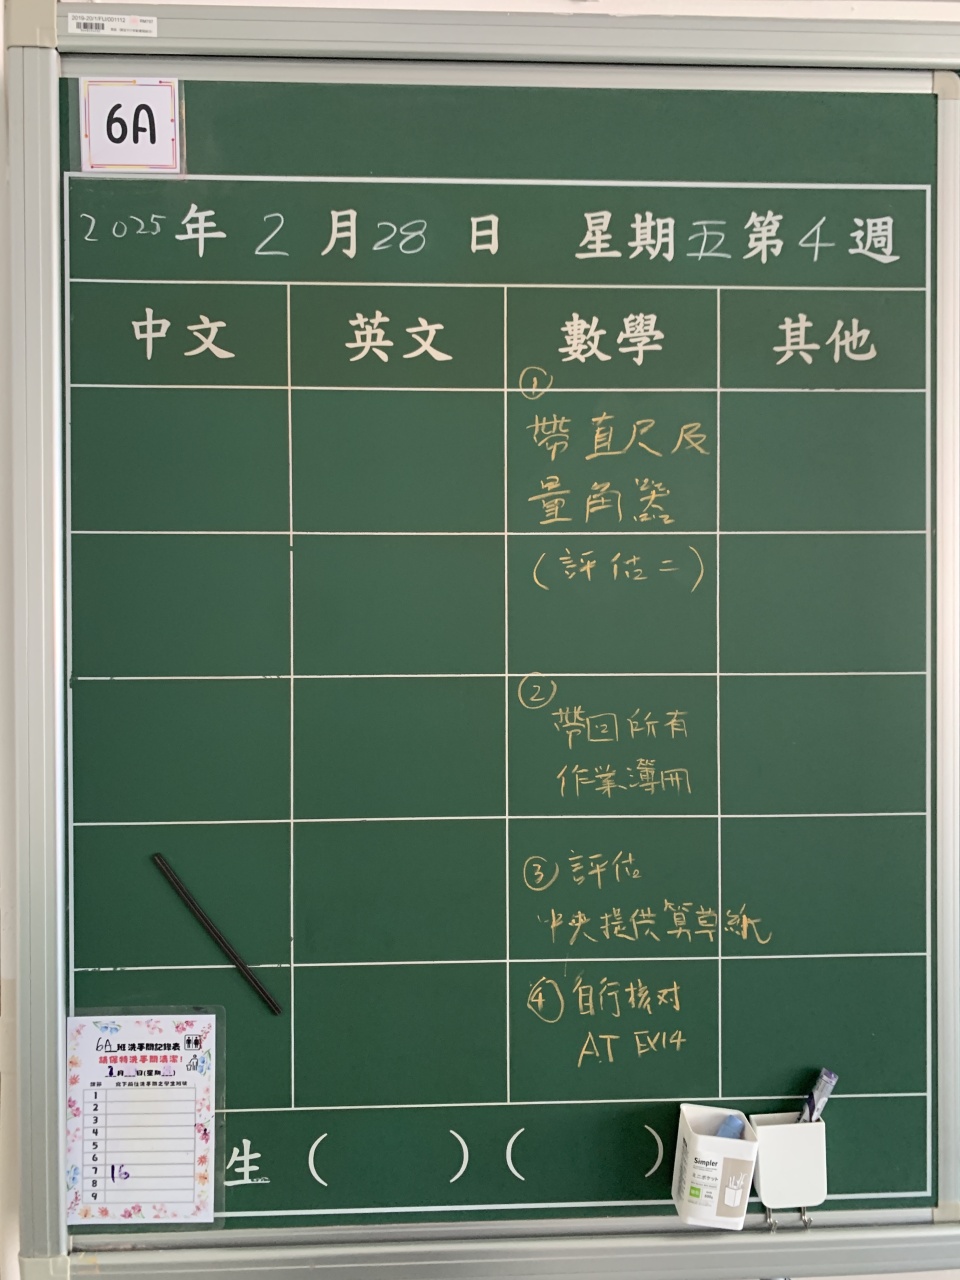 2019-2021/FU/001112
6A
2025年 2 月 28 日 星期五第 4 週
中文 英文 數學 其他
①
帶直尺及
量角器
(評估二)
②
帶回所有
作業簿冊
③ 評估
中央提供算草紙
④ 自行核对
AT EX14
6A 班洗手間記錄表
請保持洗手間清潔!
月 日(星期 )
課節
1
2
3
4
5
6
7 16
8
9
生 ( ) ( )
Simpler
ミニポケット